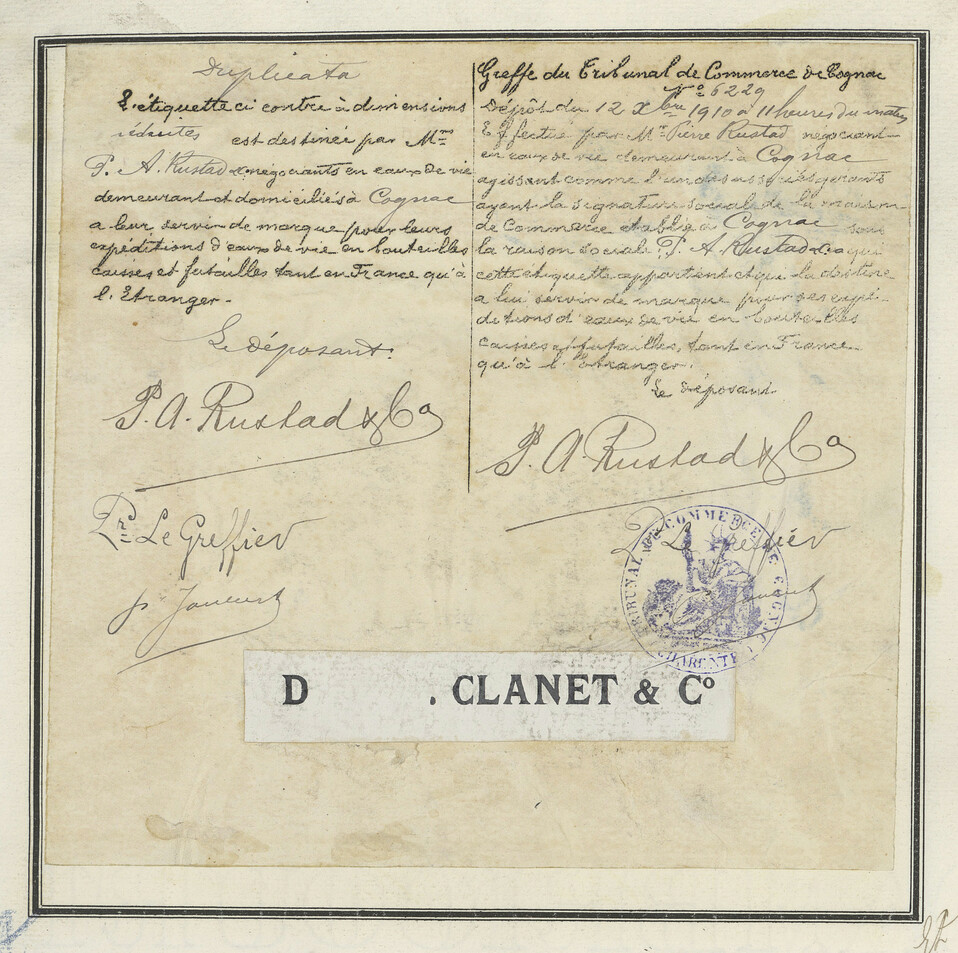 Duplicata
L'étiquette ci contre à dimensions
réduites est destinée par Mrs
P. A. Rustad & négociants en eaux de vie
demeurant et domiciliés à Cognac
a leur servir de marque pour leurs
expéditions d'eaux de vie en bouteilles
caisses et futailles tant en France qu'à
l'Etranger.
Le déposant.
P. A. Rustad & Co
Pr Le Greffier
Greffe du Tribunal de Commerce de Cognac
No 6229
Dépôt du 12 Xbre 1910 à 11 heures du matin
Effectué par Mr Pierre Rustad négociant
en eaux de vie demeurant à Cognac
agissant comme l'un des associés gérants
ayant la signature social de la maison
de Commerce établie à Cognac sous
la raison sociale P. A. Rustad & Co a qui
cette étiquette appartient et qui la destine
a lui servir de marque pour ses expé-
ditions d'eaux de vie en bouteilles
caisses, futailles, tant en France
qu'à l'Etranger.
Le déposant
P. A. Rustad & Co
Le Greffier
TRIBUNAL DE COMMERCE DE COGNAC
CHARENTE
D . CLANET & Co